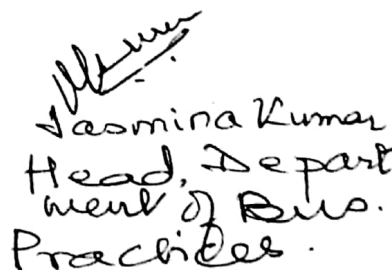 Jasmina Kumar
Head, Depart
ment of Bus.
Practices.